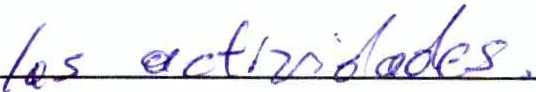 las actividades.